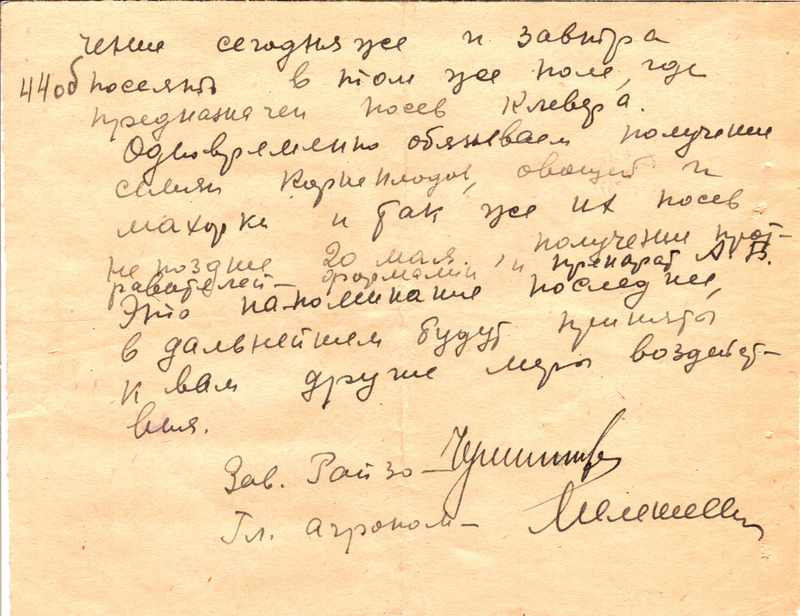 чение сегодня же и завтра
44об посеять в том же поле, где
предназначен посев клевера.
Одновременно обязываем получение
семян корнеплодов, овощей и
махорки и так же их посев
не позднее 20 мая., получение прот-
равителей – формалин и препарат АБ.
Это напоминание последнее,
в дальнейшем будут приняты
к вам другие меры воздейст-
вия.
Зав. Райзо –
Гл. агроном –